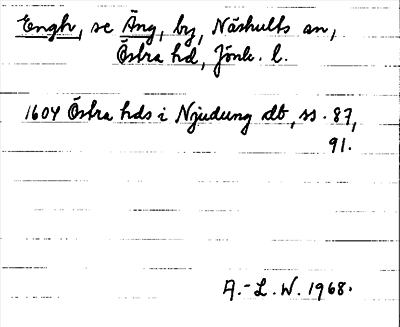 Engh, se Äng, by, Näshults sn,
Östra hd, Jönk. l.
1604 Östra hds i Njudung db, ss. 87,
91.
A.-L. W. 1968.